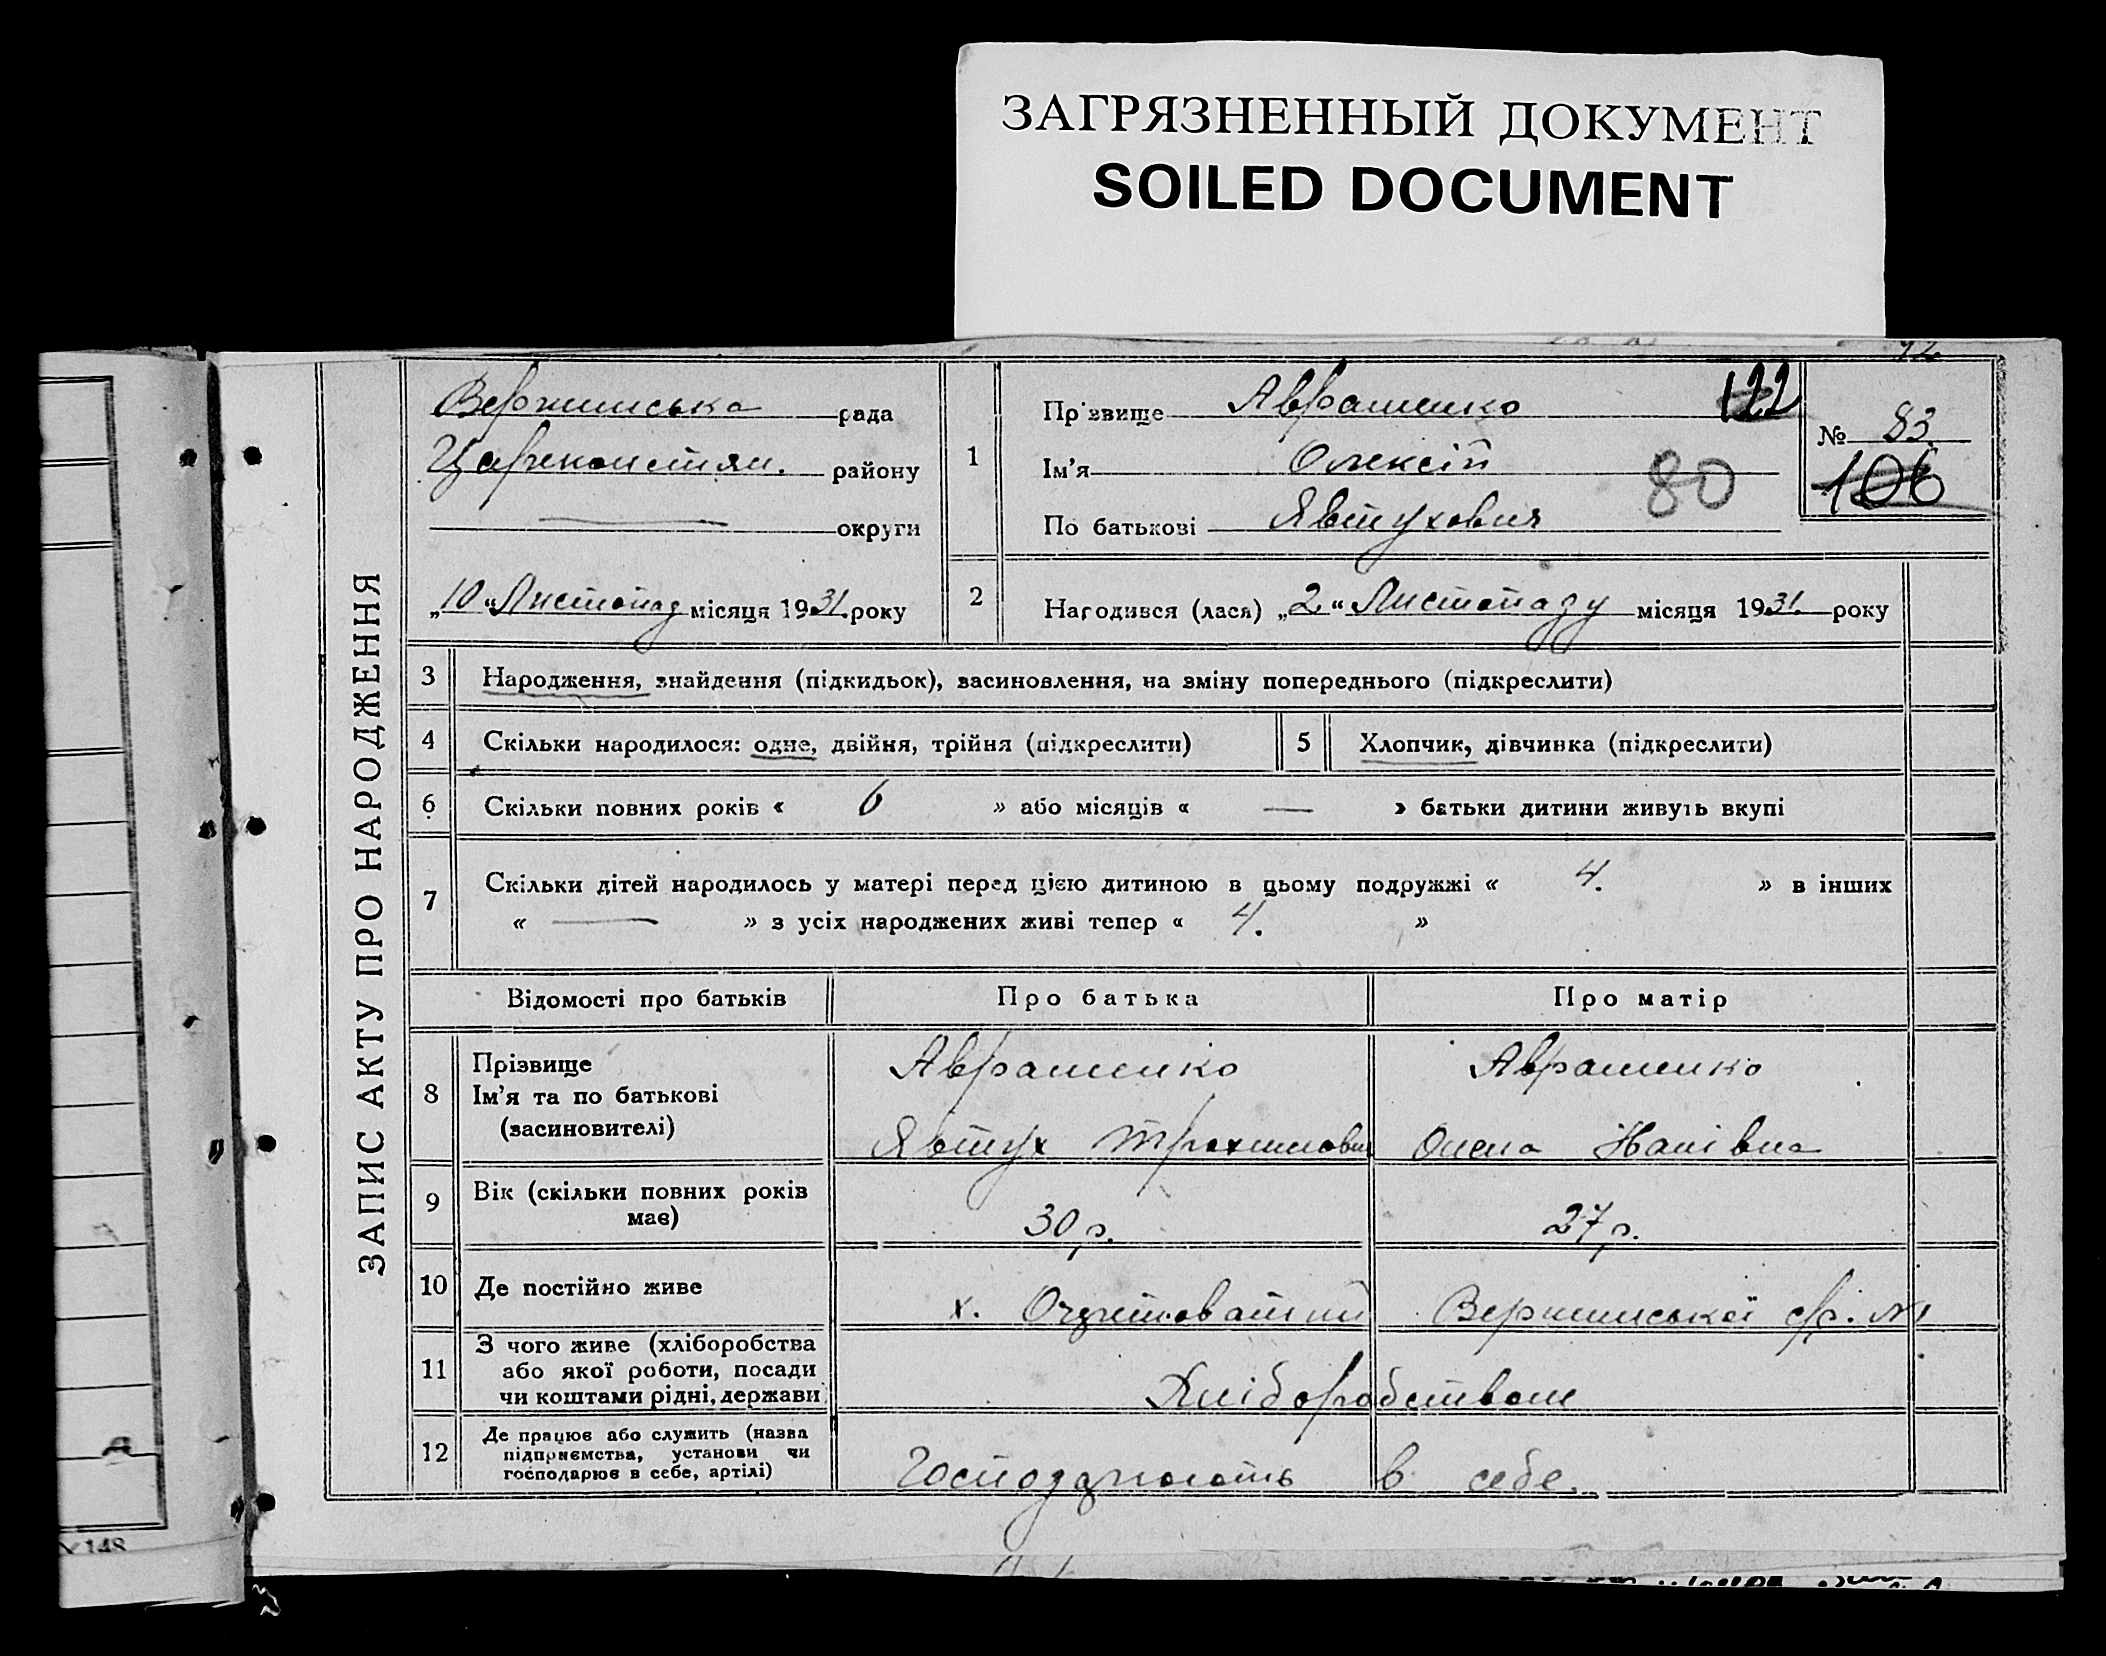 ЗАГРЯЗНЕННЫЙ ДОКУМЕНТ
SOILED DOCUMENT
ЗАПИС АКТУ ПРО НАРОДЖЕННЯ
рада
Царекостян. району
округи
„10“ Листопад місяця 1931. року
1
Прізвище Аврашенко 122
Ім'я Олексій 80
По батькові Явтухович
№ 83.
106
2 Народився (лася) „2“ Листопаду місяця 1931. року
3 Народження, знайдення (підкидьок), засиновлення, на зміну попереднього (підкреслити)
4 Скільки народилося: одне, двійня, трійня (підкреслити) 5 Хлопчик, дівчинка (підкреслити)
6 Скільки повних років « 6 » або місяців « — » батьки дитини живуть вкупі
7 Скільки дітей народилось у матері перед цією дитиною в цьому подружжі « 4. » в інших
« — » з усіх народжених живі тепер « 4. »
Відомості про батьків Про батька Про матір
8 Прізвище
Ім'я та по батькові
(засиновителі)
Аврашенко Аврашенко
Явтух Трохимович Олена
9 Вік (скільки повних років
має)
30 р. 27 р.
10 Де постійно живе х. Вершинської с/р. №1
11 З чого живе (хліборобства
або якої роботи, посади
чи коштами рідні, держави
Хліборобством
12 Де працює або служить (назва
підприємства, установи чи
господарює в себе, артілі)
Господарюють в себе.
148